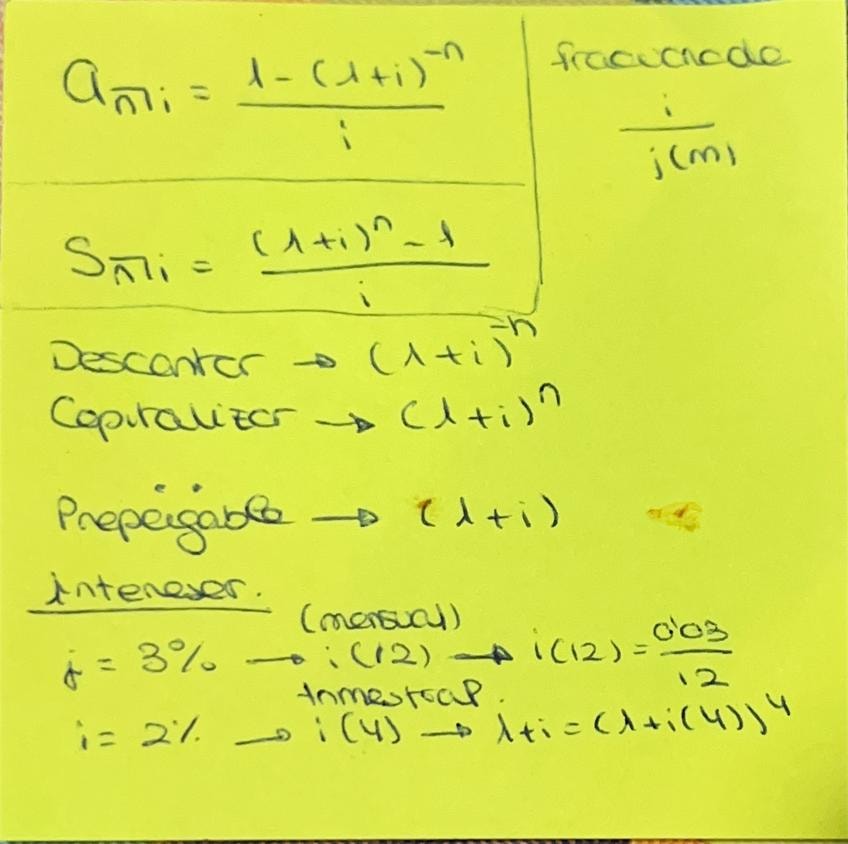 a n̅| i = (1 - (1+i)^-n) / i
fraccionada
i / j(m)
S n̅| i = ((1+i)^n - 1) / i
Descontar → (1+i)^-n
Capitalizar → (1+i)^n
Prepagable → (1+i)
intereses.
(mensual)
j = 3% → i(12) → i(12) = 0'03 / 12
trimestral.
i = 2% → i(4) → 1+i = (1+i(4))^4